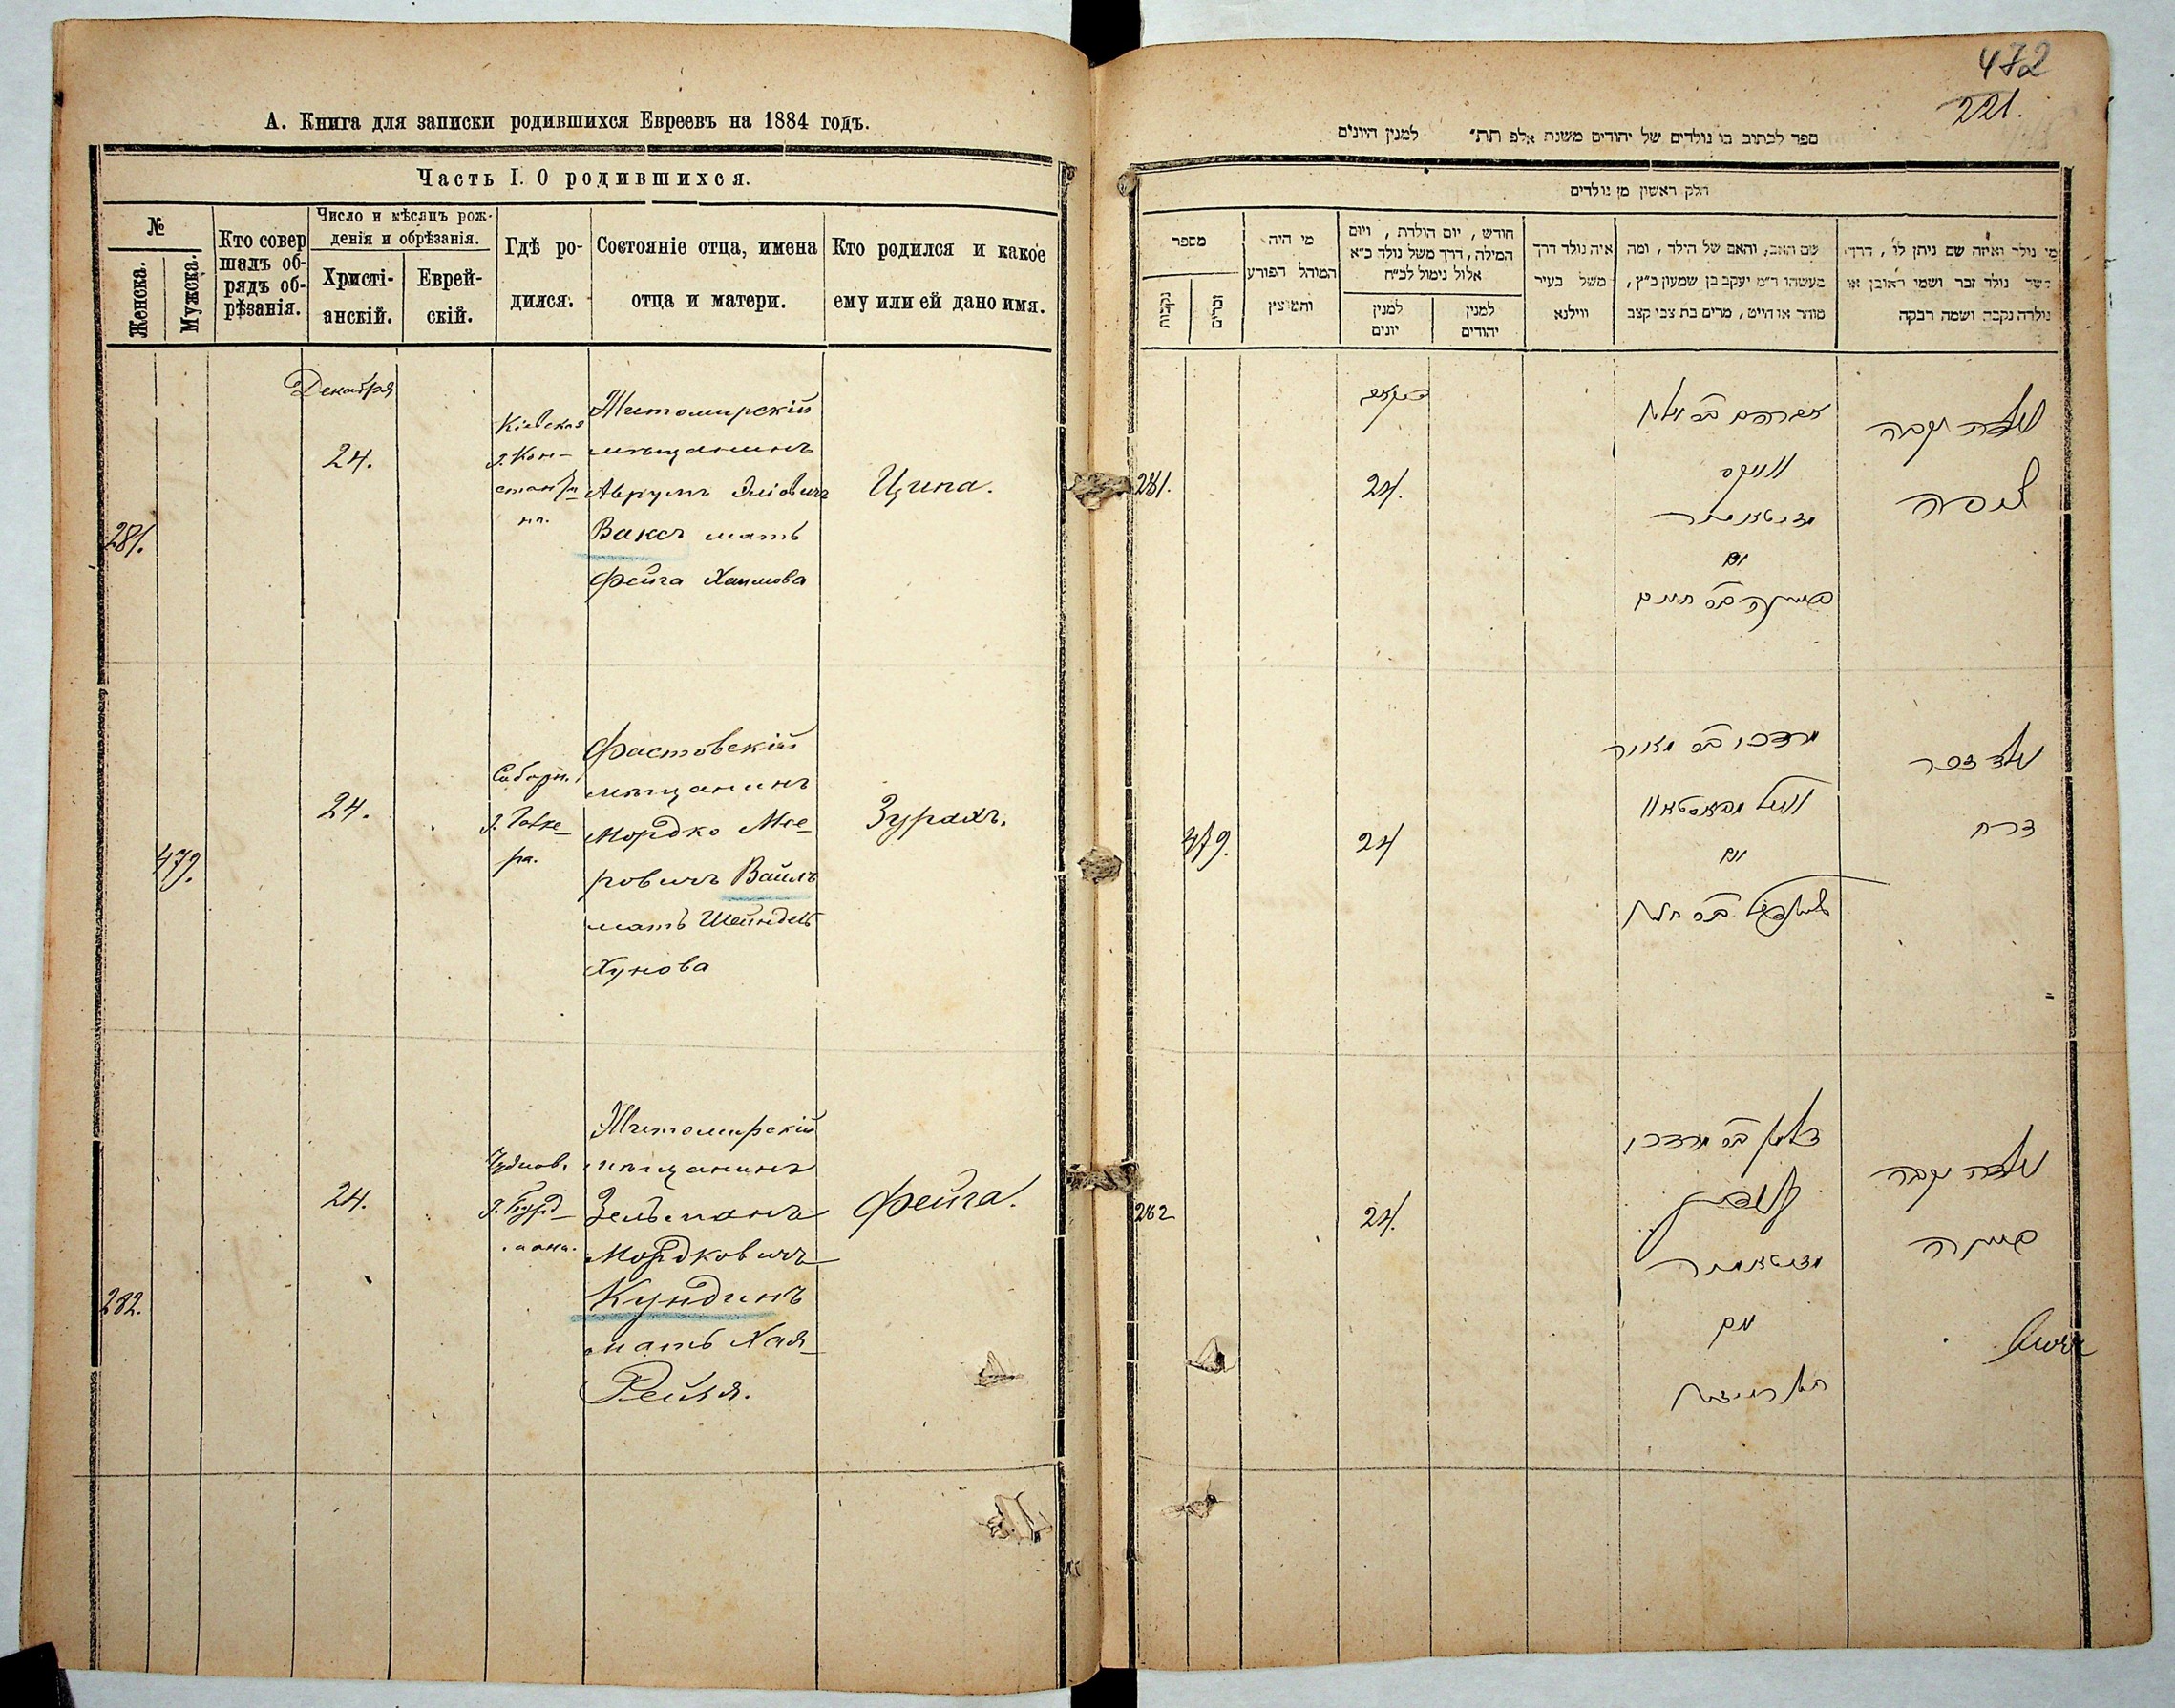 А. Книга для записки родившихся Евреевъ на 1884 годъ.
Часть I. О родившихся.
№
Женска.
Мужска.
Кто совер
шалъ об-
рядъ об-
рѣзанія.
Число и мѣсяцъ рож-
денія и обрѣзанія.
Христі-
анскій.
Еврей-
скій.
Гдѣ ро-
дился.
Состояніе отца, имена
отца и матери.
Кто родился и какое
ему или ей дано имя.
281.
Декабря
24.
Кіевская
д. Кон-
Житомирскій
мѣщанинъ
Аврумъ Эліовичъ
Ваксъ мать
Фейга Хаимова
Ципа.
479.
24.
Соборн.
Фастовскій
мѣщанинъ
Мордко Мее-
ровичъ Вайлъ
мать Шейндель
Хунова
Зурахъ.
282.
24.
Чуднов.
Житомирскій
мѣщанинъ
Зельманъ
Мордковичъ
Кундинъ
мать Хая-
Рейзя.
Фейга.
472
221.
ספר לכתוב בו נולדים של יהודים משנת אלפ תת״ למנין היונים
חלק ראשון מן נולדים
מספר
נקבות
זכרים
מי היה
המוהל הפורע
והמוצץ
חודש, יום הולדת, ויום
המילה, דרך משל נולד כ״א
אלול נימול לכ״ח
למנין
יונים
למנין
יהודים
איה נולד דרך
משל בעיר
ווילנא
שם האב, והאם של הילד, ומה
מעשהו ד״מ יעקב בן שמעון כ״ץ,
סוחר או חייט, מרים בת צבי קצב
מי נולד ואיזה שם ניתן לו, דרך
משל נולד זכר ושמו ראובן או
נולדה נקבה ושמה רבקה
281.
24.
אברהם בר אלי
וואקס
מזיטאמיר
ואם
פייגה בר חיים
נולדה נקבה
ציפה
479.
24
מרדכי בר מאיר
ווייל
ואם
נולד זכר
זרח
282
24.
זלמן בר מרדכי
מזיטאמיר
ואם
נולדה נקבה
פייגה